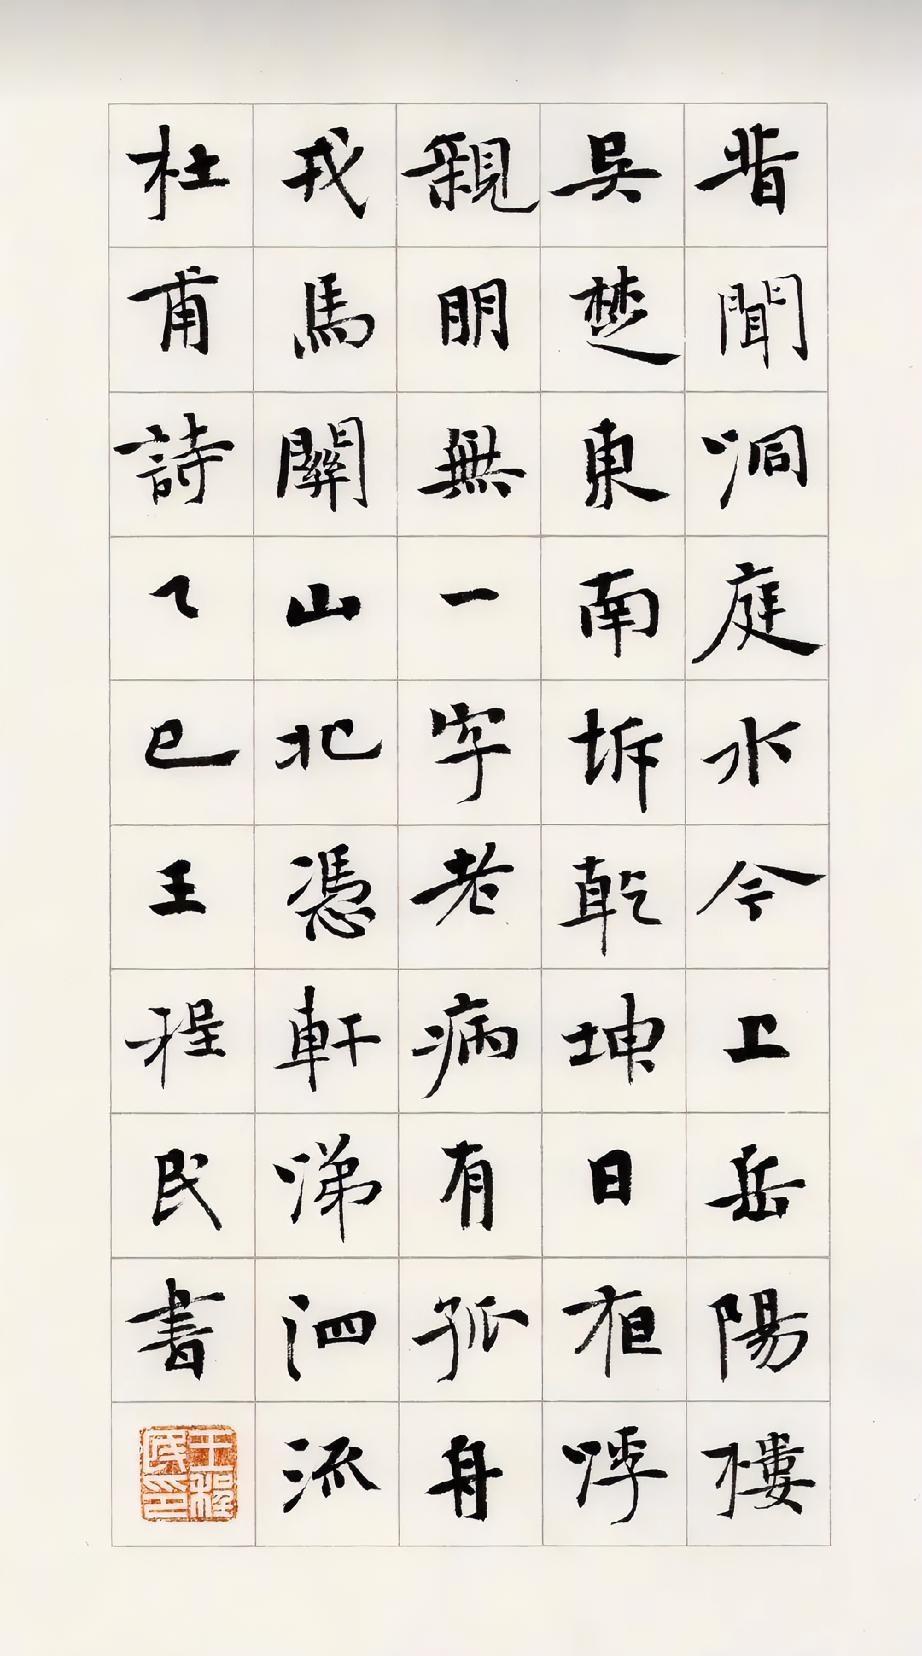 昔聞洞庭水今上岳陽樓
吳楚東南坼乾坤日夜浮
親朋無一字老病有孤舟
戎馬關山北憑軒涕泗流
杜甫詩乙巳王程民書
王程民印